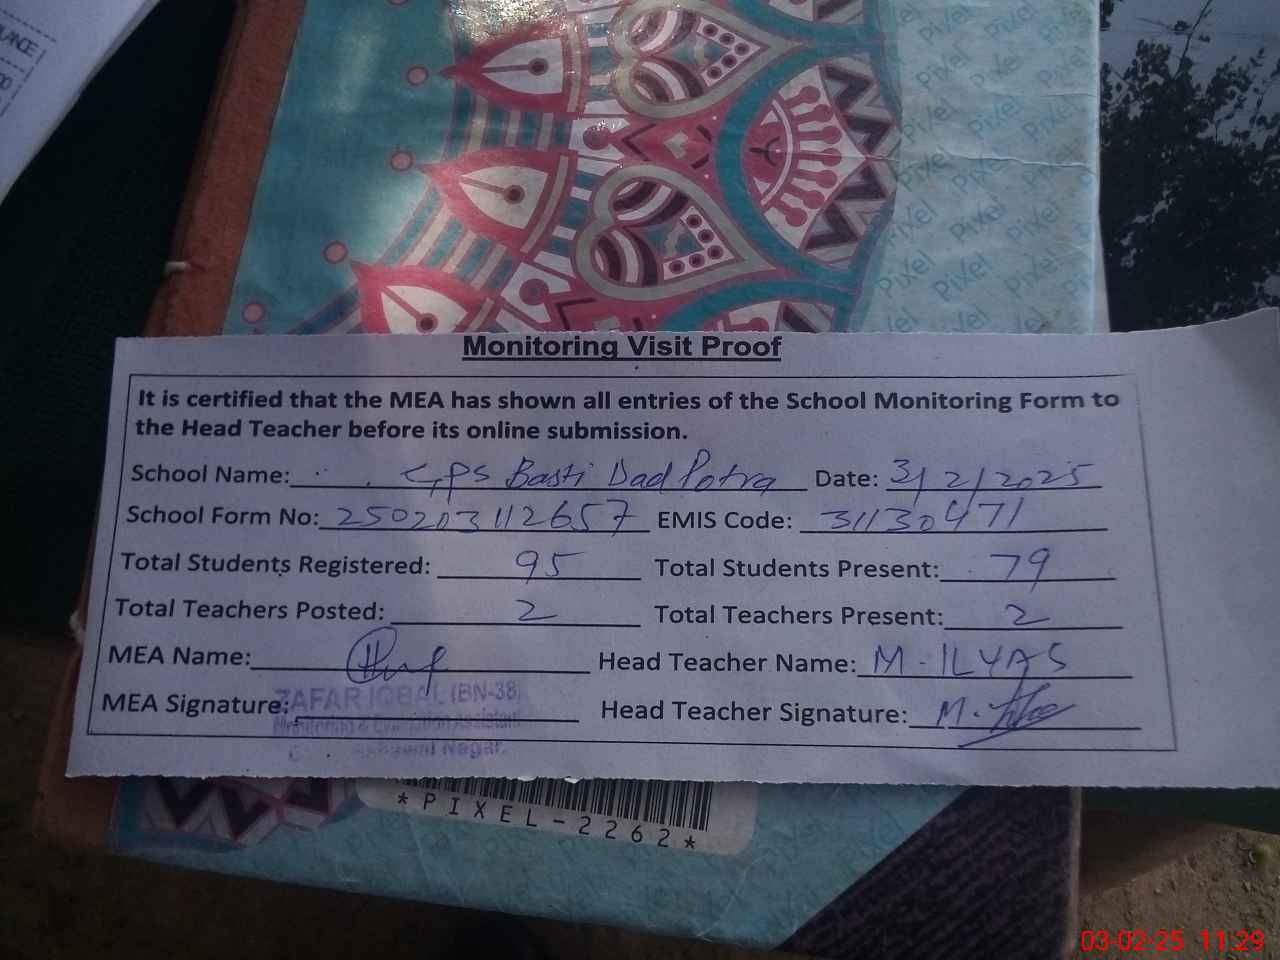 LANCE
Pixel Pixel Pixel
Monitoring Visit Proof
It is certified that the MEA has shown all entries of the School Monitoring Form to
the Head Teacher before its online submission.
School Name: GPS Basti Dad Potra Date: 3/2/2025
School Form No: 250203112657 EMIS Code: 31130471
Total Students Registered: 95 Total Students Present: 79
Total Teachers Posted: 2 Total Teachers Present: 2
MEA Name: Head Teacher Name: M-ILYAS
MEA Signature: ZAFAR IQBAL (BN-38) Head Teacher Signature: M.
Monitoring & Evaluation Assistant
Nagar.
*PIXEL-2262*
03-02-25 11:29